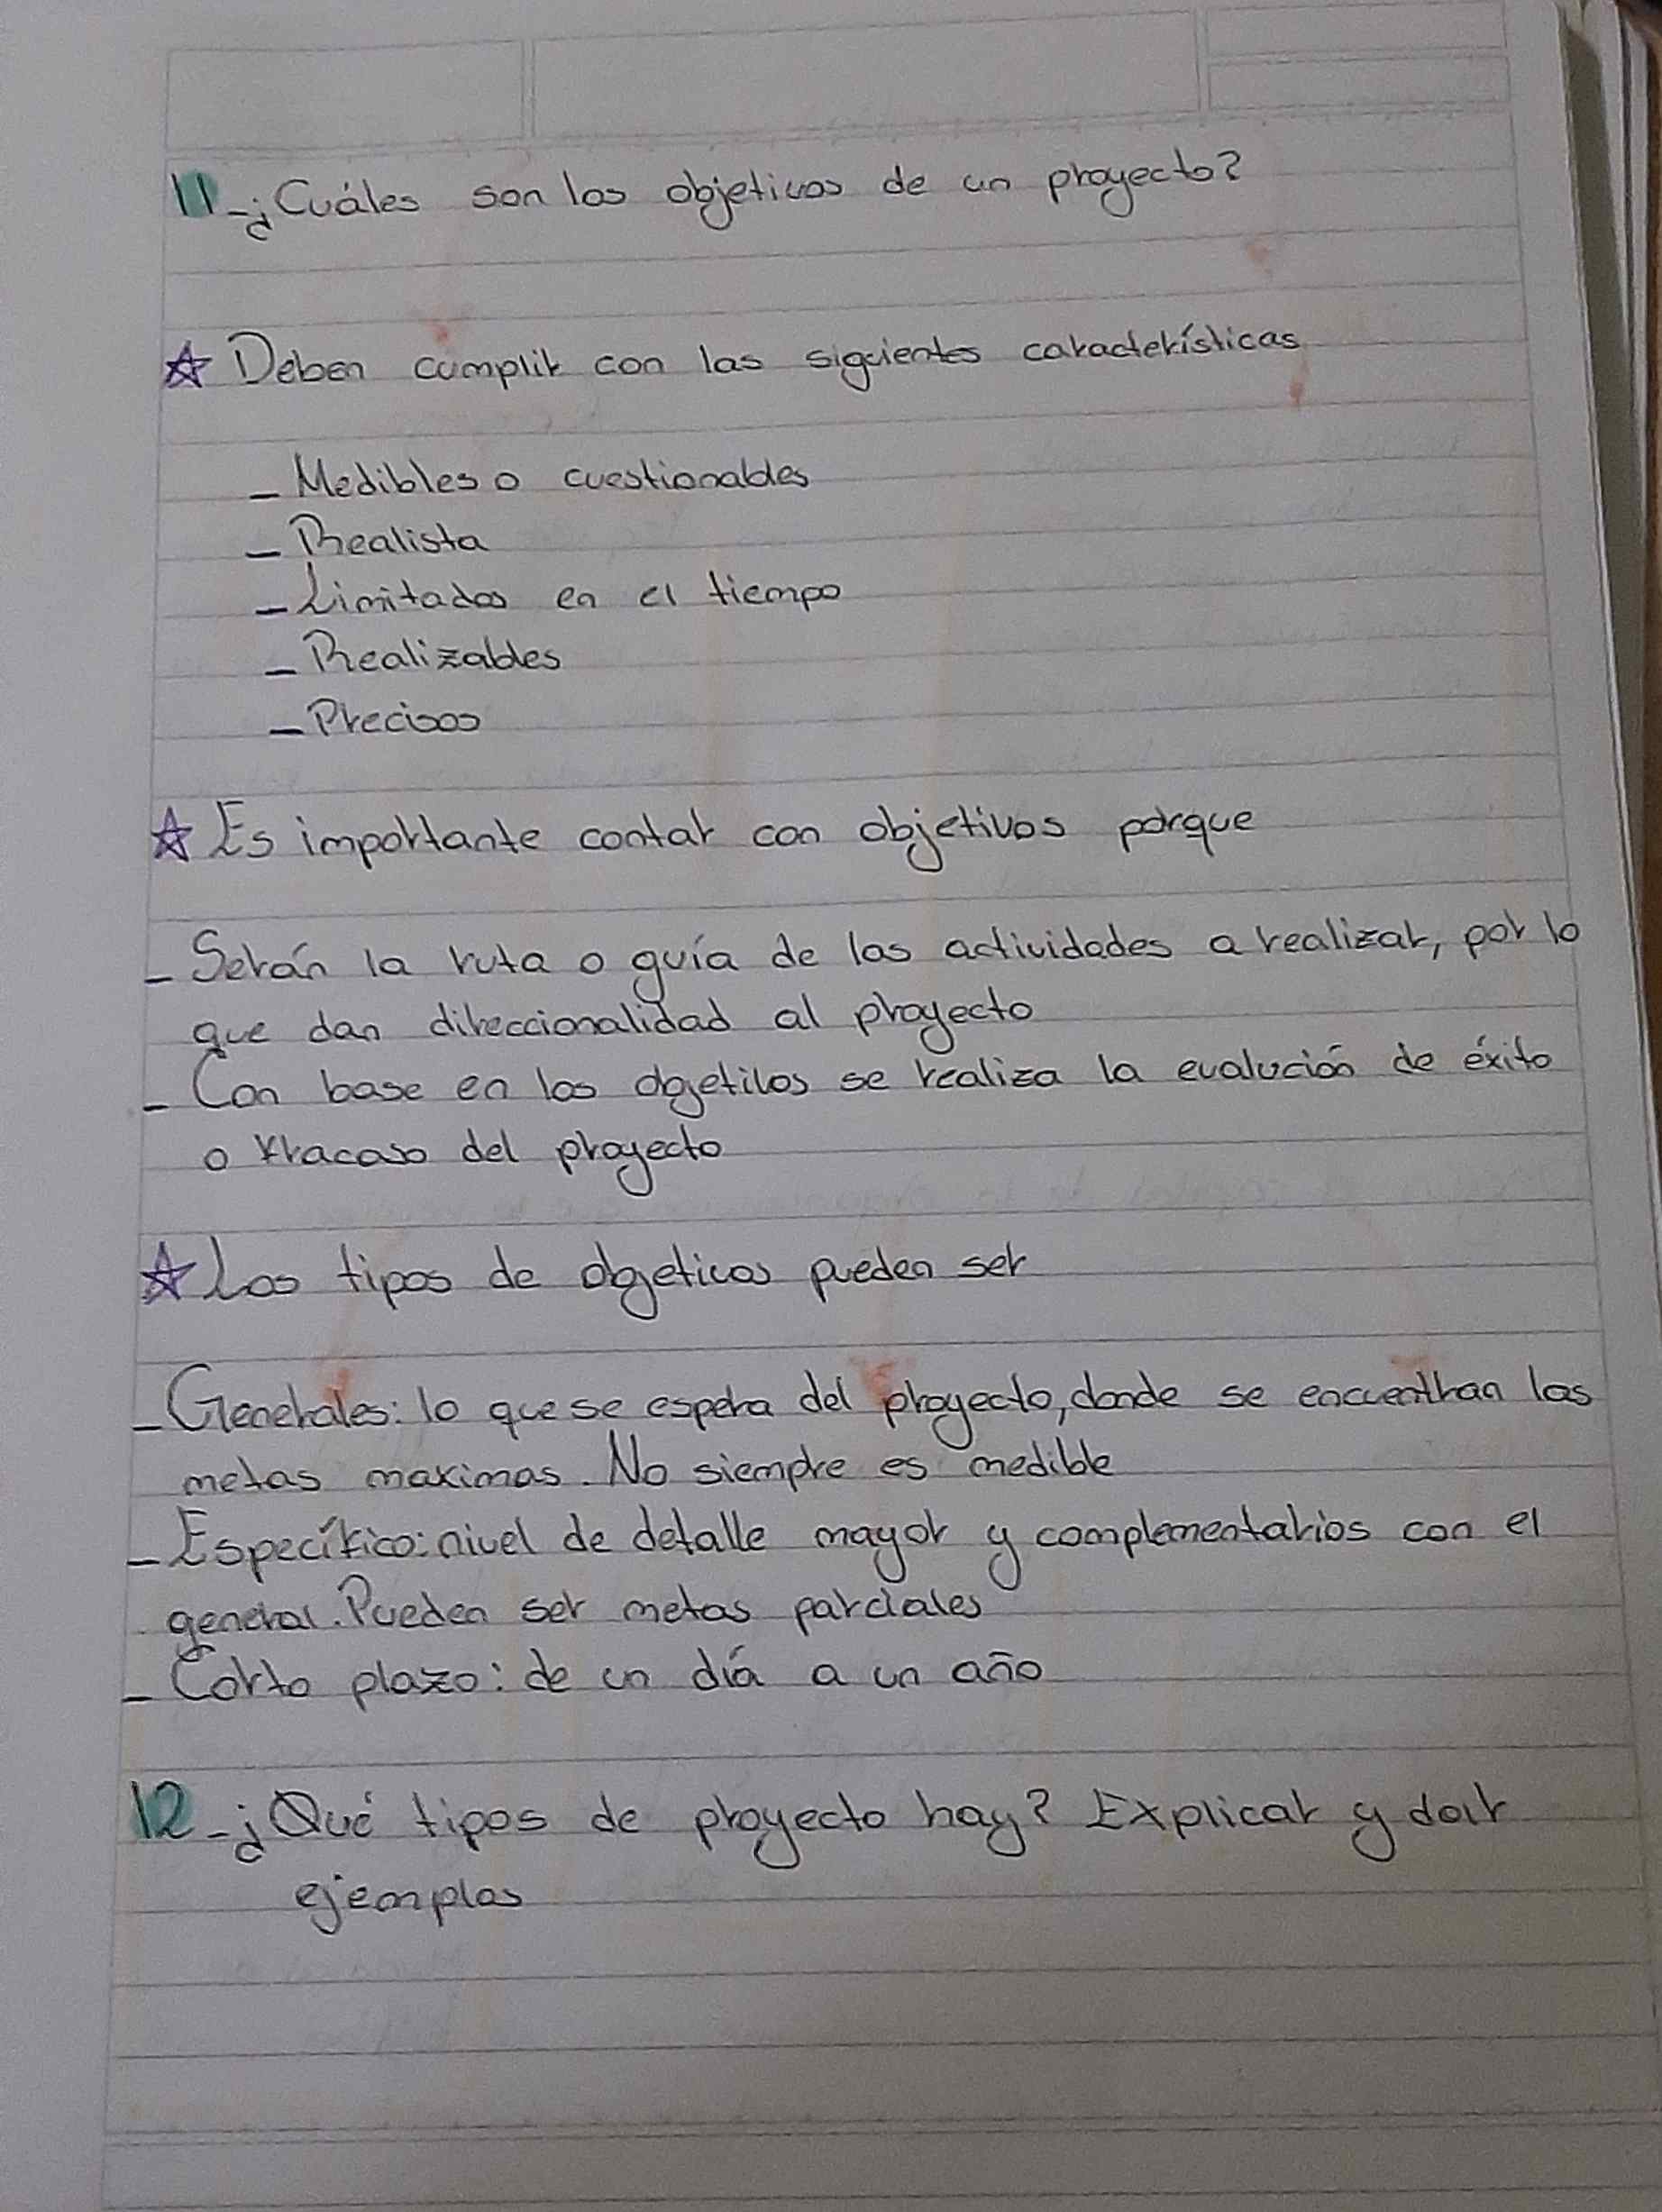 11-¿Cuáles son los objetivos de un proyecto?
☆ Deben cumplir con las siguientes características
- Medibles o cuestionables
- Realista
- Limitados en el tiempo
- Realizables
- Precisos
☆ Es importante contar con objetivos porque
- Serán la ruta o guía de las actividades a realizar, por lo
que dan direccionalidad al proyecto
- Con base en los ogetilos se realiza la evalución de éxito
o fracaso del proyecto
☆ Los tipos de obgetivos pueden ser
- Generales: lo que se espera del proyecto, donde se encuentran las
metas maximas. No siempre es medible
- Específico: nivel de detalle mayor y complementarios con el
general. Pueden ser metas parciales
- Corto plazo: de un día a un año
12-¿Qué tipos de proyecto hay? Explicar y dar
ejemplos